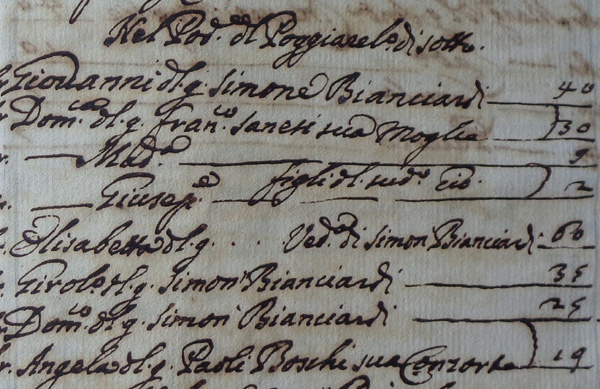 Nel Pod.e dl Poggiarel.o di sotto.
Giovanni dl q. Simone Bianciardi 40
Dom.ca dl q. Fran.co Sanesi sua Moglie 30
Mad.a 9
Giusep.e figli dl sud.o Gio. 2
Elisabetta dl q. . . Ved.a di Simon Bianciardi 60
Girol.o dl q. Simon Bianciardi 35
Dom.co dl q. Simon Bianciardi 25
Angela dl q. Paoli Boschi sua Consorte 19